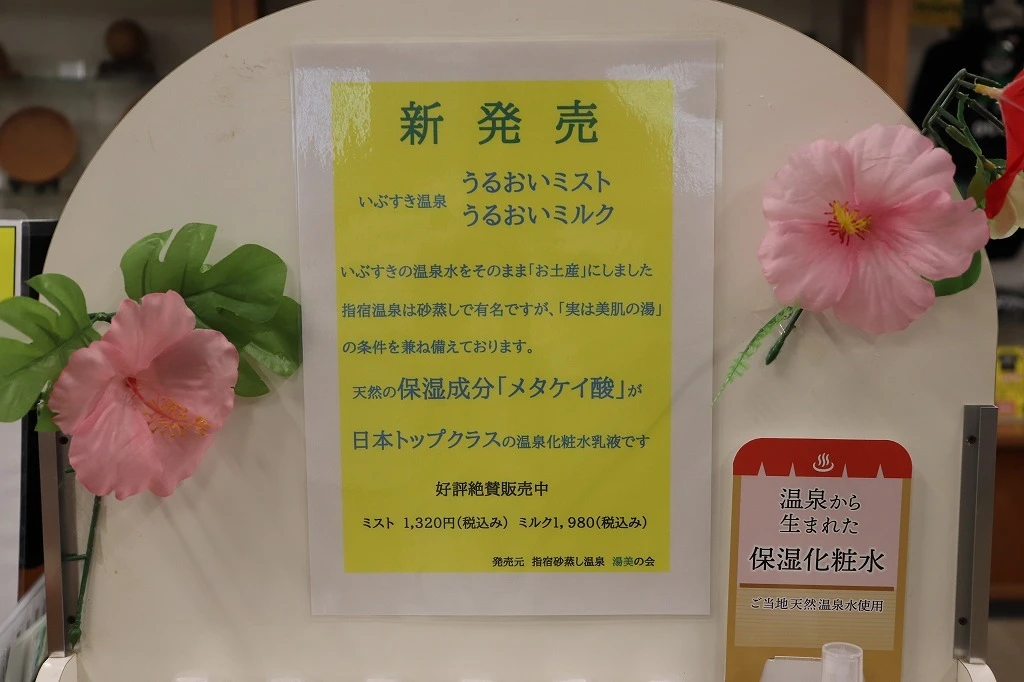 新発売
いぶすき温泉
うるおいミスト
うるおいミルク
いぶすきの温泉水をそのまま「お土産」にしました
指宿温泉は砂蒸しで有名ですが、「実は美肌の湯」
の条件を兼ね備えております。
天然の保湿成分「メタケイ酸」が
日本トップクラスの温泉化粧水乳液です
好評絶賛販売中
ミスト 1,320円(税込み) ミルク1,980(税込み)
発売元 指宿砂蒸し温泉 湯美の会
温泉から
生まれた
保湿化粧水
ご当地天然温泉水使用